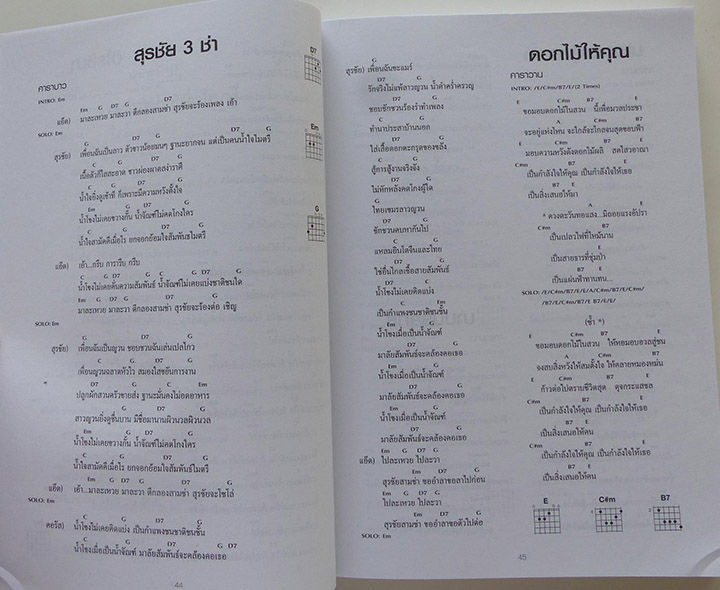 สุรชัย 3 ช่า
คาราบาว
INTRO: Em
Em G D7 G D7 G
แอ๊ด) มาละเหวย มาละวา ตีกลองสามช่า สุรชัยจะร้องเพลง เอ้า
SOLO: Em
G D7 G
สุรชัย) เพื่อนฉันเป็นลาว ตัวขาวน้อยนนๆ ฐานะยากจน แต่เป็นคนน้ำใจไมตรี
C G D7 G
เนื้อตัวก็ใสสะอาด ชาวฝอง
C G D7 G
น้ำใจยิ่งดูเข้าที ก็เพราะมีความหวังตั้งใจ
Em G D7 G
น้ำโขงไม่เคยขวางกั้น น้ำจัณฑ์ไม่คดโกงใคร
C G D7 G
น้ำใจสามัคคีเมื่อไร ยกจอกย้อมใจสัมพันธไมตรี
แอ๊ด) เอ้า...กรีบ การารีบ กรีบ
C G D7 G C G D7 G
น้ำโขงไม่เคยคั่นความสัมพันธ์ น้ำจัณฑ์ไม่เคยแบ่งชาติชนใด
Em G D7 G D7 G
มาละเหวย มาละวา ตีกลองสามช่า สุรชัยจะร้องต่อ เชิญ
SOLO: Em
G D7 G
สุรชัย) เพื่อนฉันเป็นญวน ชอบชวนฉันเล่นเปลไกว
C G D7 G
เพื่อนญวนฉลาดหัวไว สมองใสขยันการงาน
D7 G C Em
ปลูกผักสวนครัวขายส่ง ฐานะมั่นคงไม่อดอาหาร
G D7 G
สาวญวนยิ่งดูชื่นบาน มีชื่อมานานผิวนวลผิวนวล
Em G D7 G
น้ำโขงไม่เคยขวางกั้น น้ำจัณฑ์ไม่คดโกงใคร
C G D7 G
น้ำใจสามัคคีเมื่อไร ยกจอกย้อมใจสัมพันธ์ไมตรี
Em G D7 G D7 G
แอ๊ด) เอ้า...มาละเหวย มาละวา ตีกลองสามช่า สุรชัยจะโซโล่
SOLO: Em
C G D7 G
คอรัส) น้ำโขงไม่เคยคิดแบ่ง เป็นกำแพงชนชาติชนชั้น
C G D7 G D7
น้ำโขงเมื่อเป็นน้ำจัณฑ์ มาลัยสัมพันธ์จะคล้องคอเธอ
44
D7
Em
G
G
สุรชัย) เพื่อนฉันชะแมร์
D7 G
รักจริงไม่แพ้ลาวญวน น้ำคำคร่ำครวญ
D7 G
ชอบชักชวนร้องรำทำเพลง
C G
ทำนาประสาบ้านนอก
D7 G
ใส่เสื้อดอกตะกรุดของขลัง
C G
สู้การสู้งานจริงจัง
D7 G
ไม่หักหลังคดโกงผู้ใด
G
ไทยเขมรลาวญวน
D7 G
ชักชวนคบหากันไป
C G
แหลมอินโดจีนและไทย
D7 G
ใช่อื่นไกลเชื้อสายสัมพันธ์
D7 G
น้ำโขงไม่เคยคิดแบ่ง
D7 C
เป็นกำแพงชนชาติชนชั้น
C G
น้ำโขงเมื่อเป็นน้ำจัณฑ์
D7 G
มาลัยสัมพันธ์จะคล้องคอเธอ
C G
น้ำโขงเมื่อเป็นน้ำจัณฑ์
D7 G
มาลัยสัมพันธ์จะคล้องคอเธอ
C G
น้ำโขงเมื่อเป็นน้ำจัณฑ์
D7 G
มาลัยสัมพันธ์จะคล้องคอเธอ
Em G D7 G
แอ๊ด) ไปละเหวย ไปละวา
D7 G
สุรชัยสามช่า ขออำลาขอลาไปก่อน
Em G D7 G
ไปละเหวย ไปละวา
D7 G
สุรชัยสามช่า ขออำลาขอตัวไปต่อ
SOLO: Em
ดอกไม้ให้คุณ
คาราวาน
INTRO: /E/C#m/B7/E/(2 Times)
E C#m B7 E
ขอมอบดอกไม้ในสวน นี้เพื่อมวลประชา
A C#m B7 E
จะอยู่แห่งไหน จะใกล้จะไกลจนสุดขอบฟ้า
E C#m B7 E
มอบความหวังดังดอกไม้ผลิ สดไสวอาณา
C#m B7 E
เป็นกำลังใจให้คุณ เป็นกำลังใจให้เธอ
B7 E
เป็นสิ่งเสนอให้มา
A E
* ดวงตะวันทอแสง...มิถอยแรงอัปรา
B7 E
เป็นเปลวไฟที่ไหม้นาน
A E
เป็นสายธารที่ชุ่มป่า
B7 E
เป็นแผ่นฟ้าทานทน...
SOLO: /E/C#m/B7/E/E/A/C#m/B7/E/C#m/
/B7/E/C#m/B7/E B7/E/E/
(ซ้ำ *)
E C#m B7 E
ขอมอบดอกไม้ในสวน ให้หอมอบอวลสู่ชน
A C#m B7 E
จงสบสิ่งหวังให้สมตั้งใจ ให้คลายหมองหม่น
E C#m B7 E
ก้าวต่อไปตราบชีวิตสุด ดุจกระแสชล
C#m B7 E
เป็นกำลังใจให้คุณ เป็นกำลังใจให้เธอ
B7 E
เป็นสิ่งเสนอให้คน
C#m B7 E
เป็นกำลังใจให้คุณ เป็นกำลังใจให้เธอ
B7 E
เป็นสิ่งเสนอให้คน
E C#m B7
45